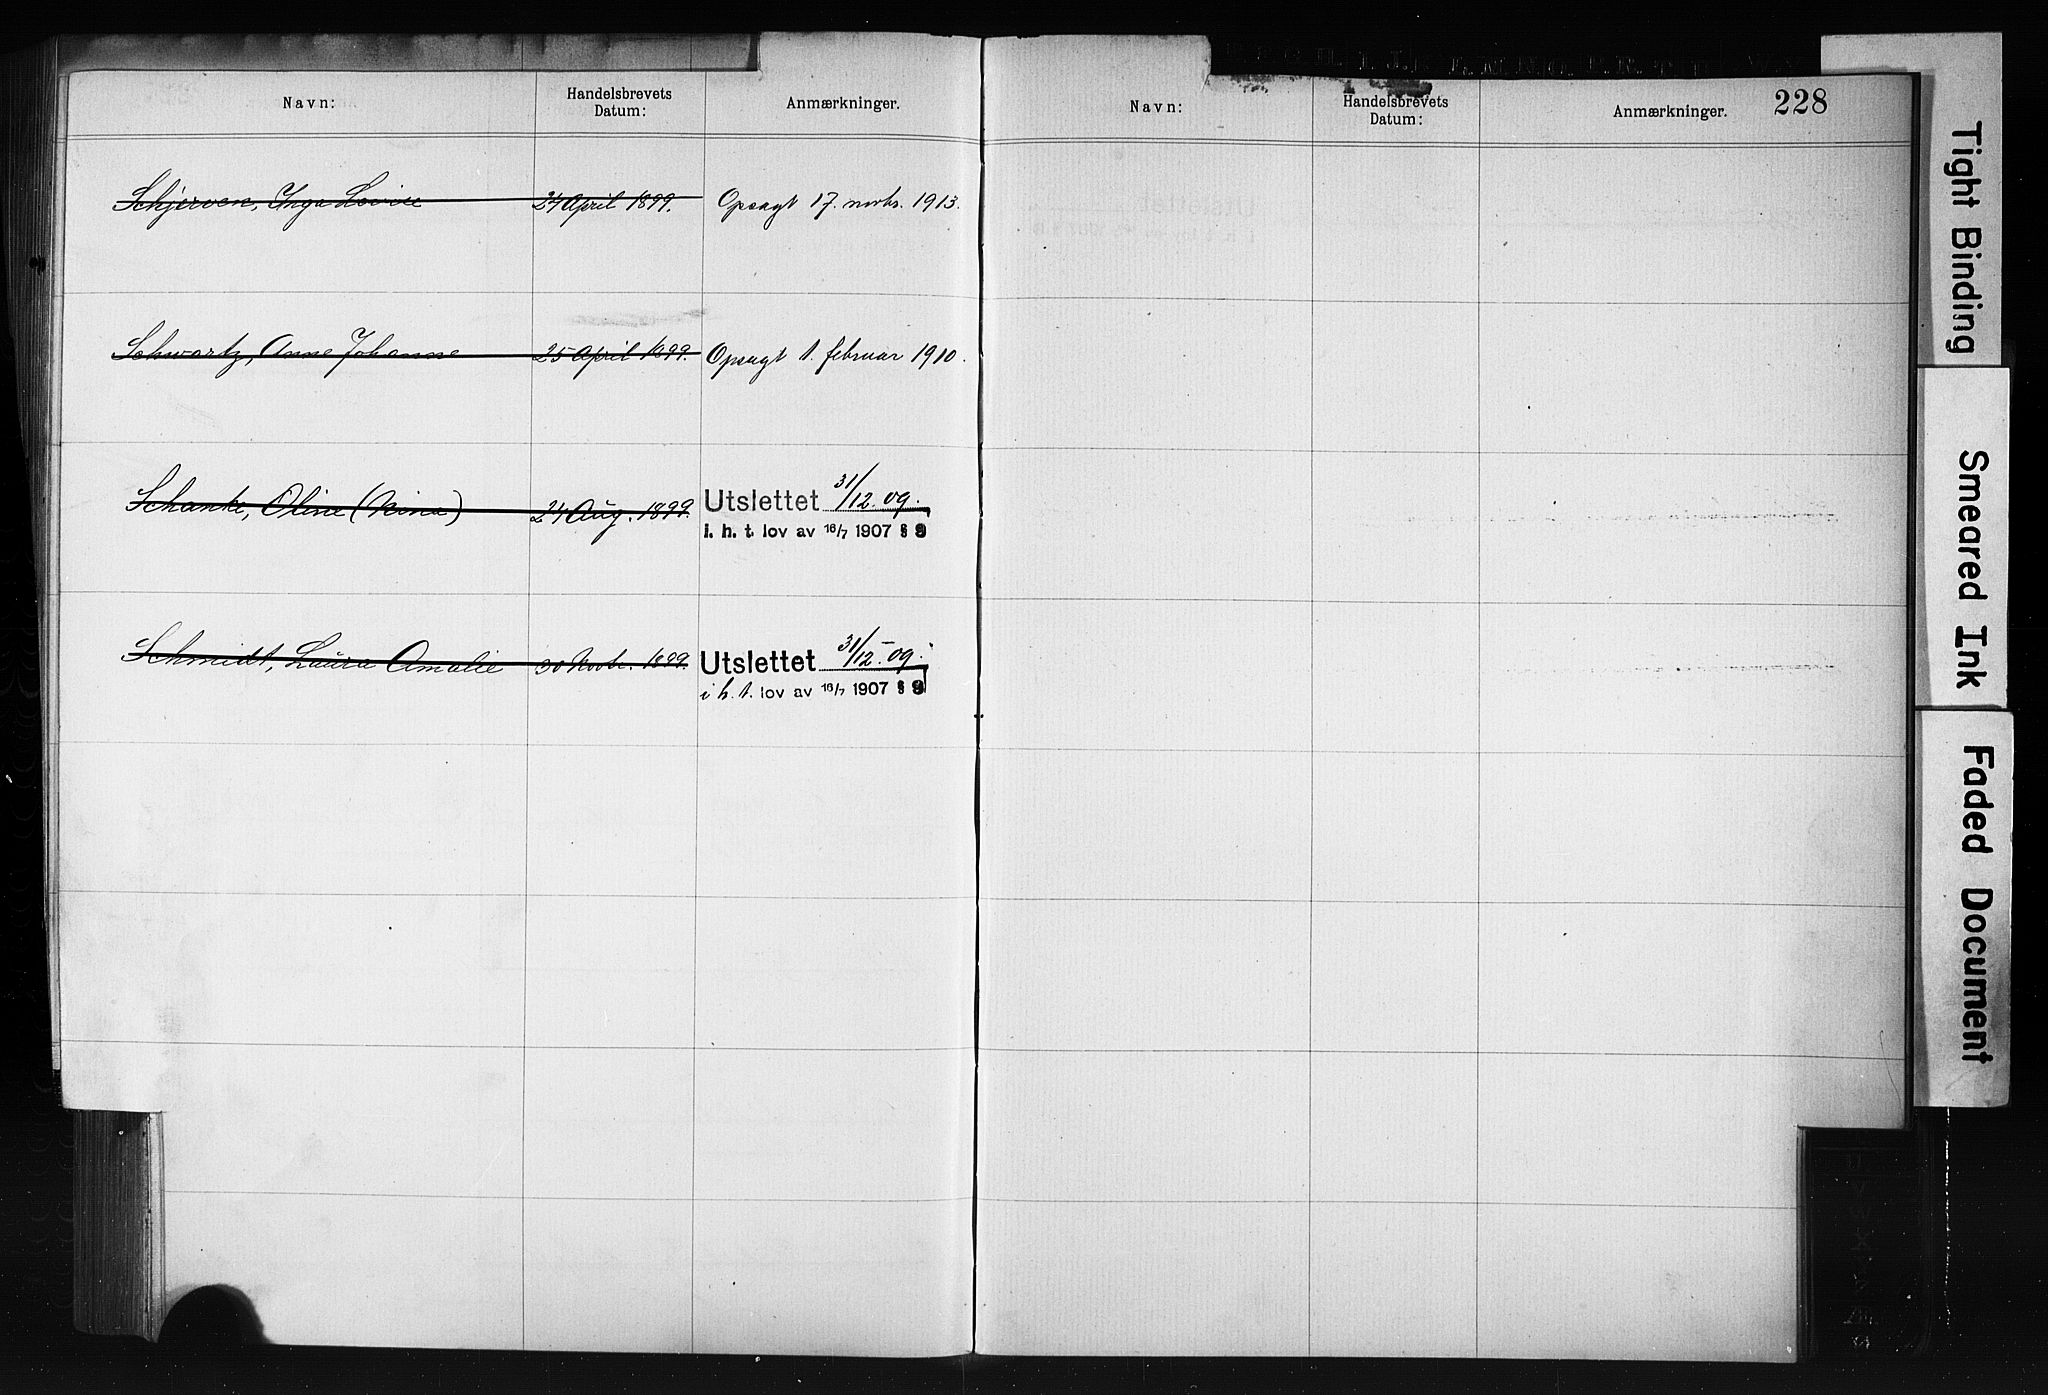 Navn: Handelsbrevets Datum: Anmærkninger.
Schjerven, Inga Lovise 24 April 1899. Opsagt 17. novbr. 1913.
Schwartz, Anne Johanne 25 April 1899. Opsagt 1. februar 1910.
Schanke, Oline (Nina) 24 Aug. 1899. Utslettet 31/12. 09.
i. h. t. lov av 16/7 1907 § 9
Schmidt, Laura Amalie 30 Novbr. 1899. Utslettet 31/12. 09.
i h. t. lov av 16/7 1907 § 9
Navn: Handelsbrevets Datum: Anmærkninger. 228
Tight Binding
Smeared Ink
Faded Document